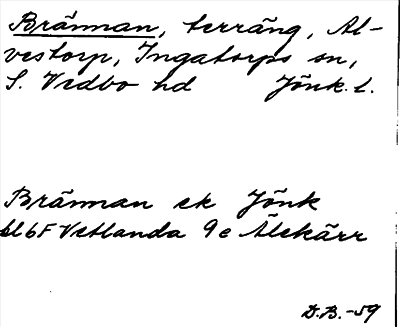 Brännan, terräng, Al-
vestorp, Ingatorps sn,
S. Vedbo hd Jönk. l.
Brännan ek Jönk
bl 6F Vetlanda 9e Älekärr
D.B.-59